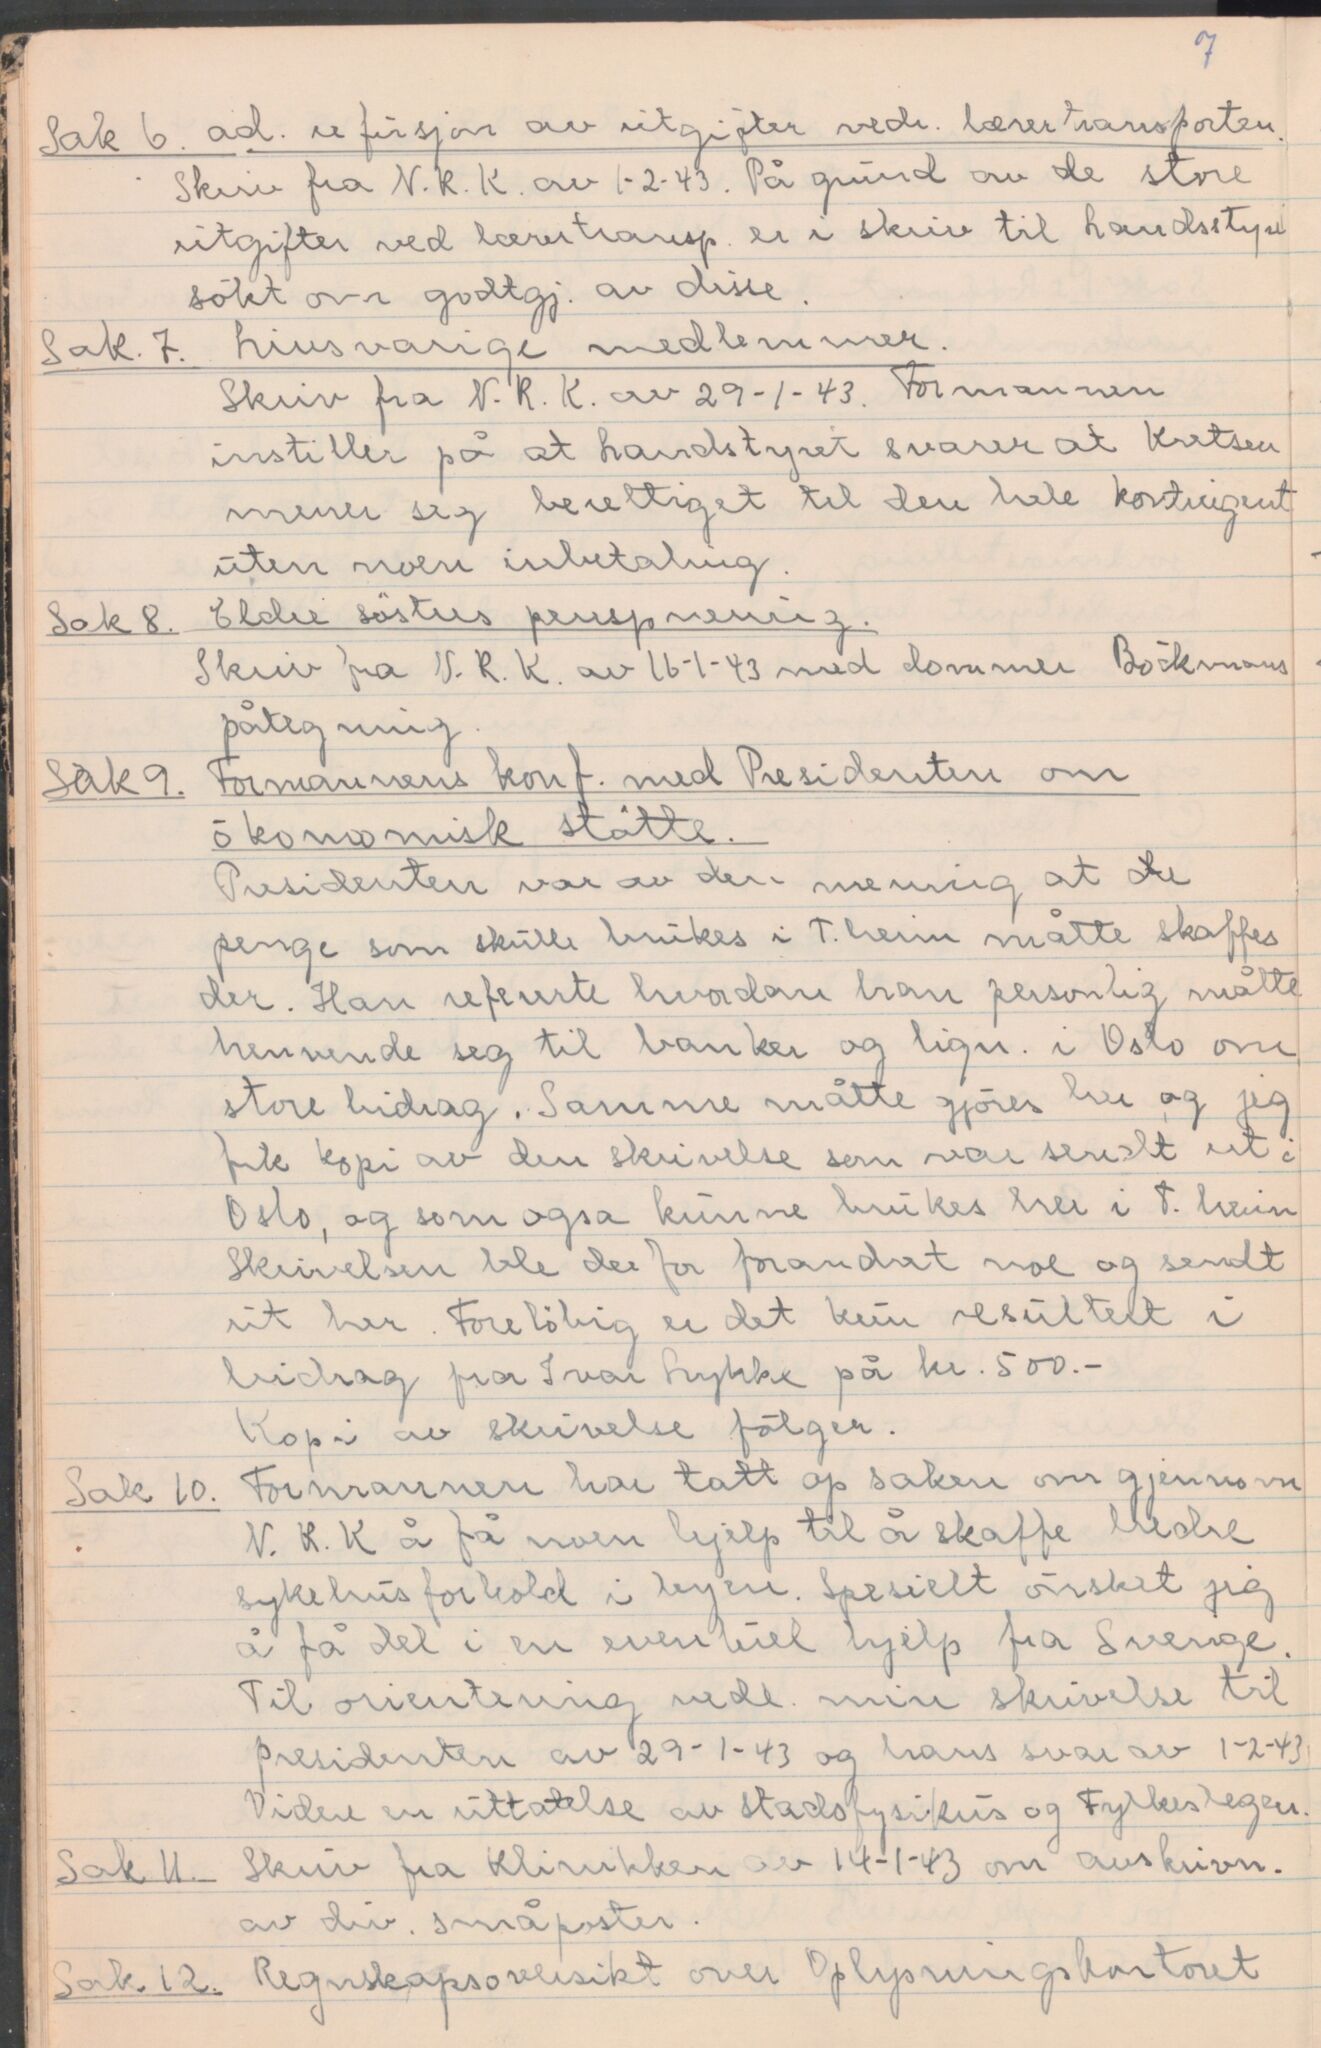 7
Sak 6. ad. refusjon av utgifter vedr. lærertransporten.
Skriv fra N.R.K. av 1-2-43. På grund av de store
utgifter ved lærertransp. er i skriv til landsstyre
sökt om godtgj. av disse.
Sak. 7. Livsvarige medlemmer.
Skriv fra N.R.K. av 29-1-43. Formannen
instiller på at landstyret svarer at Kretsen
mener seg berettiget til den hele kontingent
uten noen inbetaling.
Sak 8. Eldre söstres pensjonering.
Skriv fra N.R.K. av 16-1-43 med dommer Böckmans
påtegning.
Sak 9. Formannens konf. med Presidenten om
ökonomisk stötte.
Presidenten var av den mening at de
penge som skulle brukes i T.heim måtte skaffes
der. Han refererte hvordan han personlig måtte
henvende seg til banker og lign. i Oslo om
store bidrag. Samme måtte gjöres her og jeg
fik kopi av den skrivelse som var sendt ut i
Oslo, og som ogsa kunne brukes her i T.heim
Skrivelsen ble derfor forandret noe og sendt
ut her. Forelöbig er det kun resultert i
bidrag fra Ivar Lykke på kr. 500.-
Kopi av skrivelse fölger.
Sak 10. Formannen har tatt op saken om gjennom
N.R.K å få noen hjelp til å skaffe bedre
sykehusforhold i byen. Spesielt önsket jeg
å få del i en eventuel hjelp fra Sverige.
Til orientering vedl. min skrivelse til
presidenten av 29-1-43 og hans svar av 1-2-43
Videre en uttalelse av stadsfysikus og Fylkeslegen.
Sak 11. Skriv fra Klinikken av 14-1-43 om avskrivn.
av div. småposter.
Sak. 12. Regnskapsoversikt over Oplysningskontoret